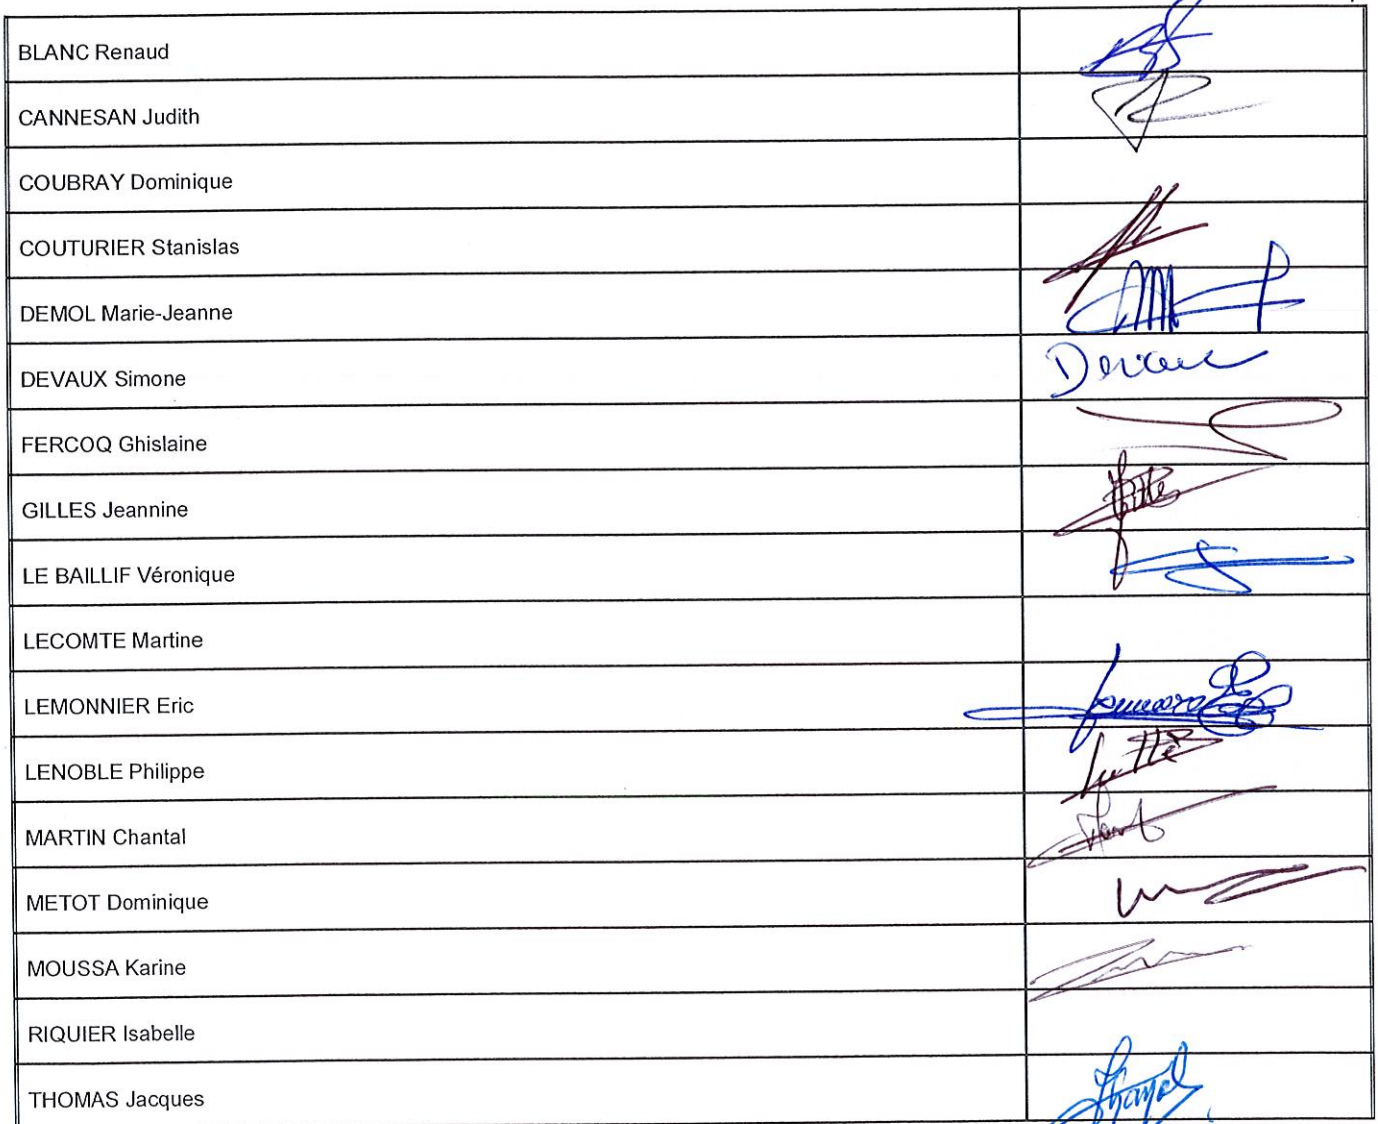 BLANC Renaud
CANNESAN Judith
COUBRAY Dominique
COUTURIER Stanislas
DEMOL Marie-Jeanne
DEVAUX Simone
Devaux
FERCOQ Ghislaine
GILLES Jeannine
LE BAILLIF Véronique
LECOMTE Martine
LEMONNIER Eric
LENOBLE Philippe
MARTIN Chantal
METOT Dominique
MOUSSA Karine
RIQUIER Isabelle
THOMAS Jacques